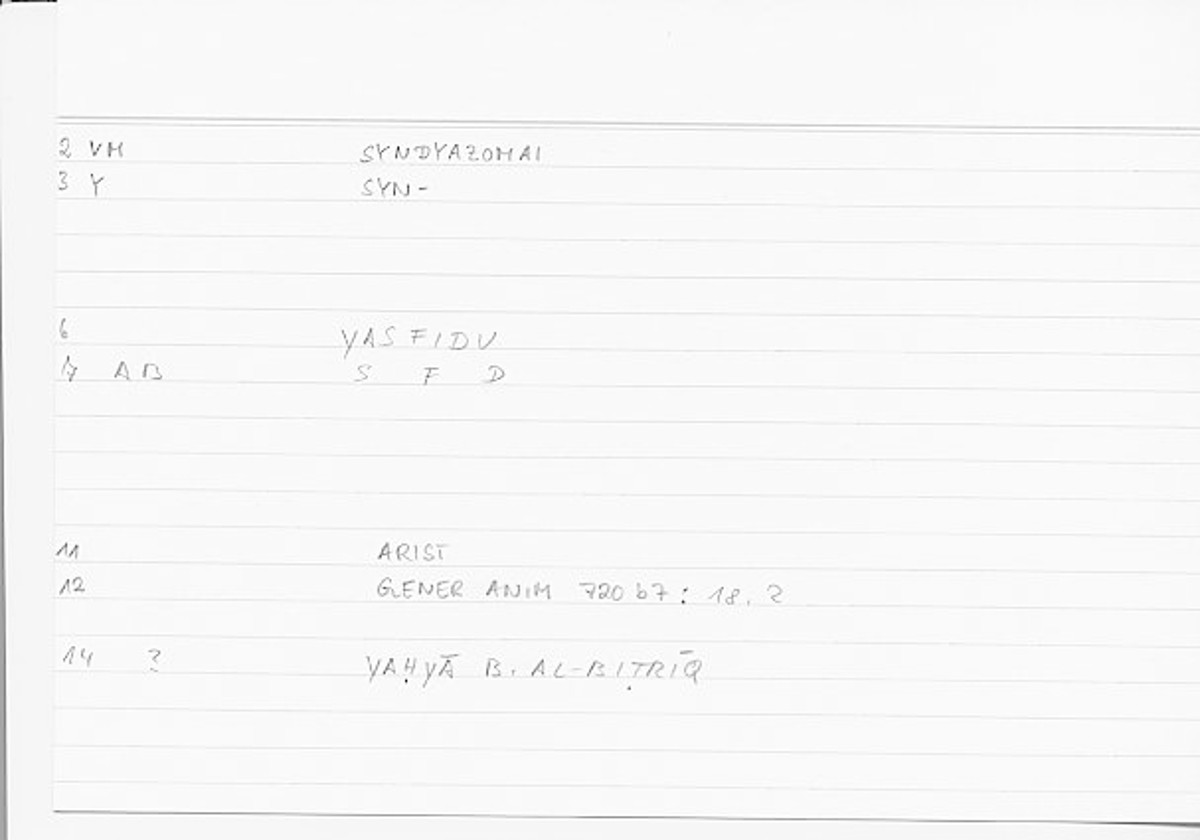 2 VM SYNDYAZOMAI
3 Y SYN-
6 YASFIDU
7 AB S F D
11 ARIST
12 GENER ANIM 720 b7 : 18. 2
14 ? YAḤYĀ B. AL-BIṬRĪQ